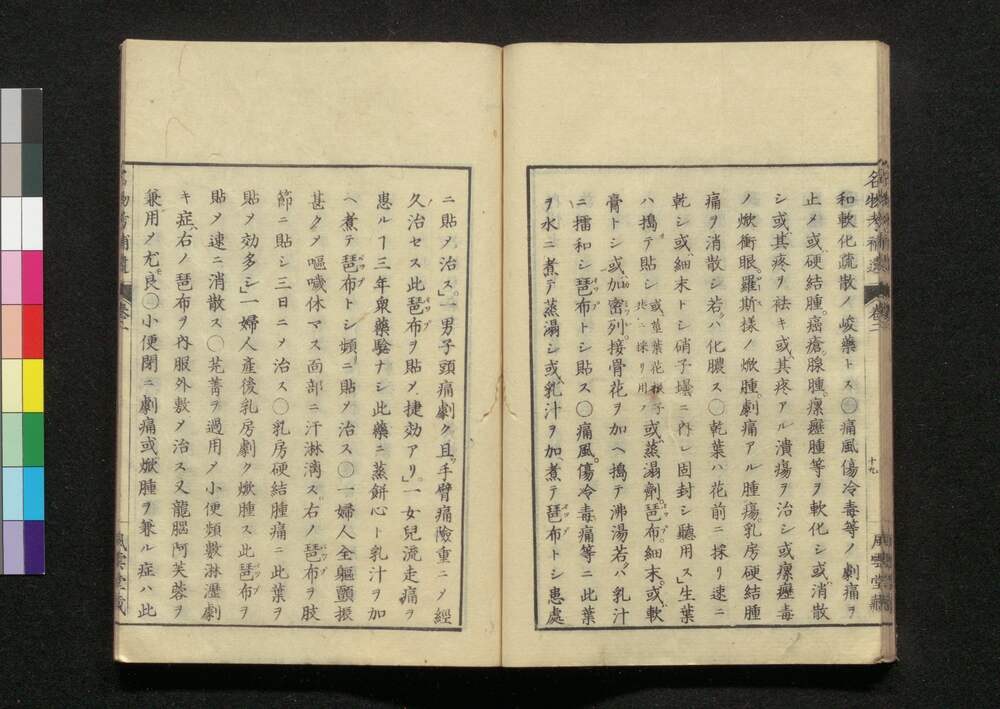 名物考補遺 卷二 十九 風雲堂藏
和軟化疏散ノ峻藥トス〇痛風傷冷毒等ノ劇痛ヲ
止メ或硬結腫。癌瘡。腺腫。瘰癧腫等ヲ軟化シ或ハ消散
シ或ハ其疼ヲ袪キ或ハ其疼アル潰瘍ヲ治シ或瘰癧毒
ノ焮衝眼。羅斯樣ノ焮腫。劇痛アル腫瘍。乳房硬結腫
痛ヲ消散シ若ハ化膿ス〇乾葉ハ花前ニ採リ速ニ
乾シ或ハ細末トシ硝子壜ニ內レ固封シ聽用ス」生葉
ハ搗テ貼シ或莖葉花根子ヲ此ニ採リ用フ或ハ蒸溻劑。琶布。細末。或ハ軟
膏トシ或ハ加密列。接骨花ヲ加ヘ搗テ沸湯若ハ乳汁
ニ擂和シ琶布トシ貼ス〇痛風。傷冷毒痛等ニ此葉
ヲ水ニ煮テ蒸溻シ或ハ乳汁ヲ加ヘ煮テ琶布トシ患處
ニ貼メ治ス。」一男子頭痛劇ク且ツ手臂痛險重ニメ經
久治セス此琶布ヲ貼メ捷効アリ。」一女兒流走痛ヲ
患ルヿ三年衆藥驗ナシ此藥ニ蒸餅心ト乳汁ヲ加
ヘ煮テ琶布トシ頻ニ貼メ治ス〇一婦人全軀顫振
甚クメ嘔噦休マス面部ニ汗淋漓ス右ノ琶布ヲ肢
節ニ貼シ三日ニメ治ス〇乳房硬結腫痛ニ此葉ヲ
貼メ効多シ」一婦人產後乳房劇ク焮腫ス此琶布ヲ
貼メ速ニ消散ス〇芫菁ヲ過用メ小便頻數淋瀝劇
キ症ハ右ノ琶布ヲ內服外敷メ治ス又龍腦阿芙蓉ヲ
兼用メ尤良〇小便閉ニ劇痛或焮腫ヲ兼ル症ハ此
名物考補遺 卷二 風雲堂藏